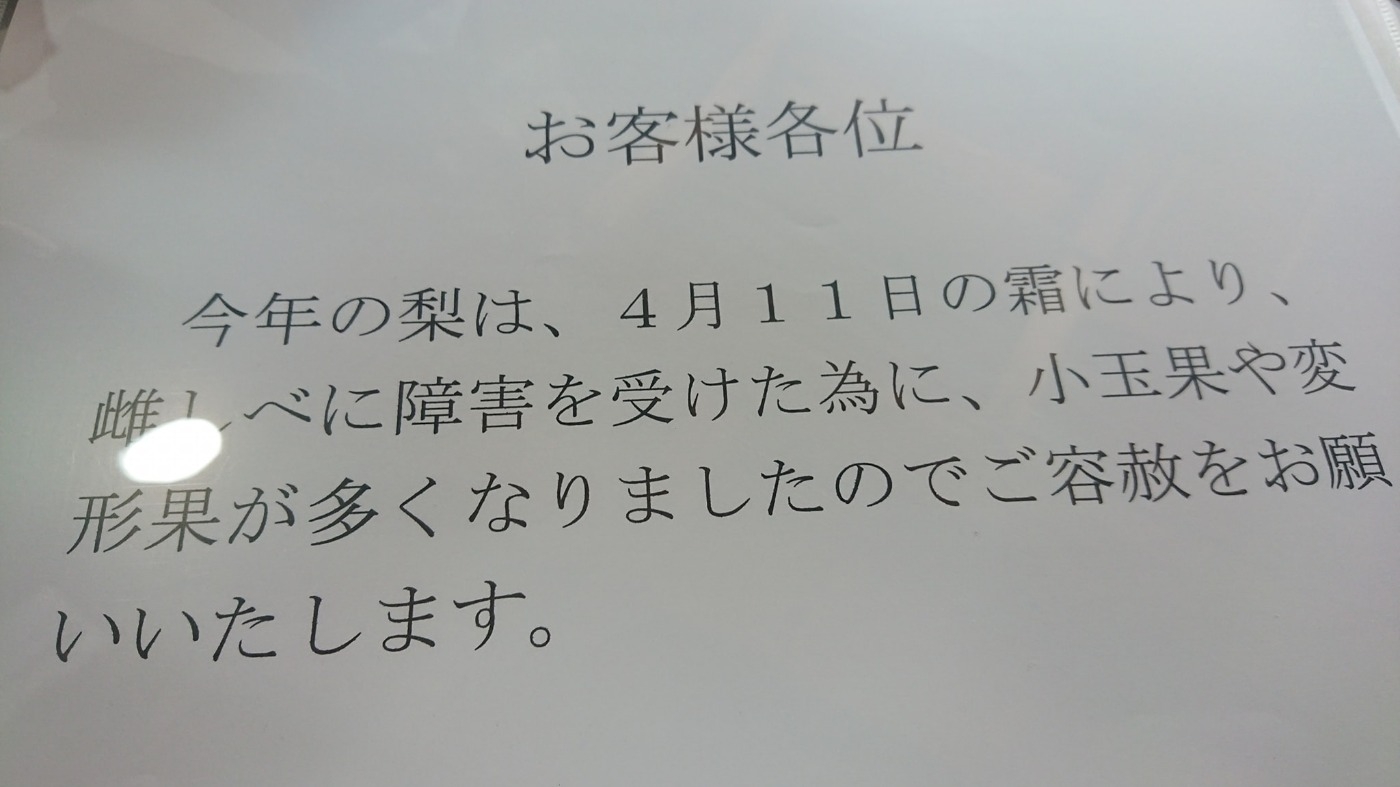 お客様各位
今年の梨は、４月１１日の霜により、
雌しべに障害を受けた為に、小玉果や変
形果が多くなりましたのでご容赦をお願
いいたします。